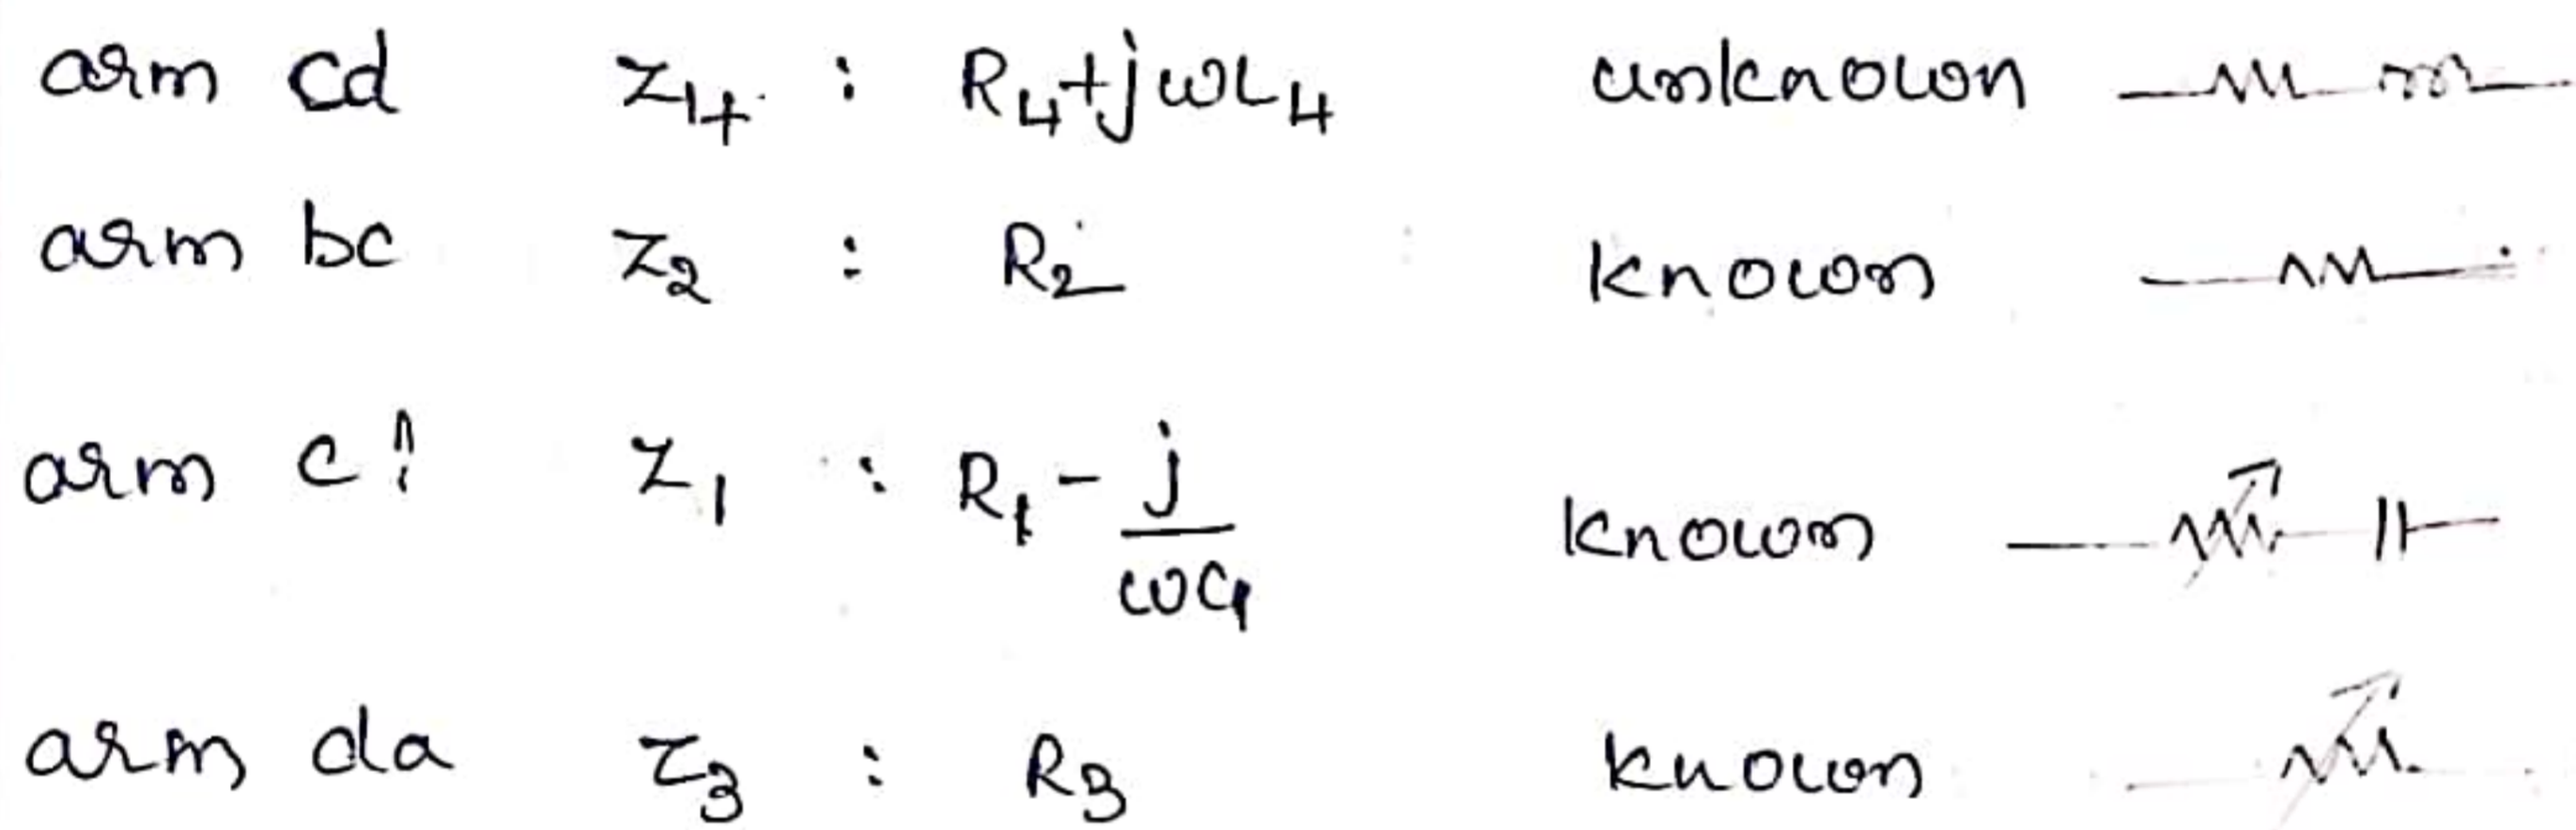 arm cd Z4 : R4+jωL4 unknown
arm bc Z2 : R2 known
arm Z1 : R1 - j/ωC1 known
arm da Z3 : R3 known